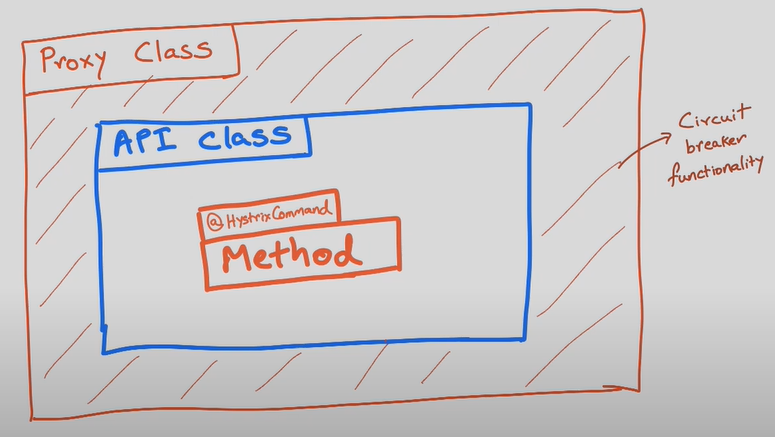 Proxy Class
API class
@HystrixCommand
Method
Circuit
breaker
functionality